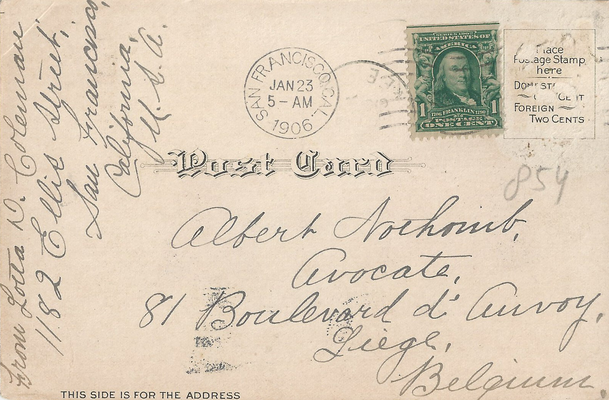 From Lotta D. Coleman
1182 Ellis Street,
San Francisco,
California,
U. S. A.
SAN FRANCISCO, CAL.
JAN 23
5 - AM
1906
SERIES 1902
UNITED STATES OF
AMERICA
1706 FRANKLIN 1790
1 1
POSTAGE
ONE CENT
Place
Postage Stamp
here
FOREIGN
TWO CENTS
Post Card
854
Albert Nothomb,
Avocate,
81 Boulevard d'Auvoy,
Liege,
Belgium,
THIS SIDE IS FOR THE ADDRESS